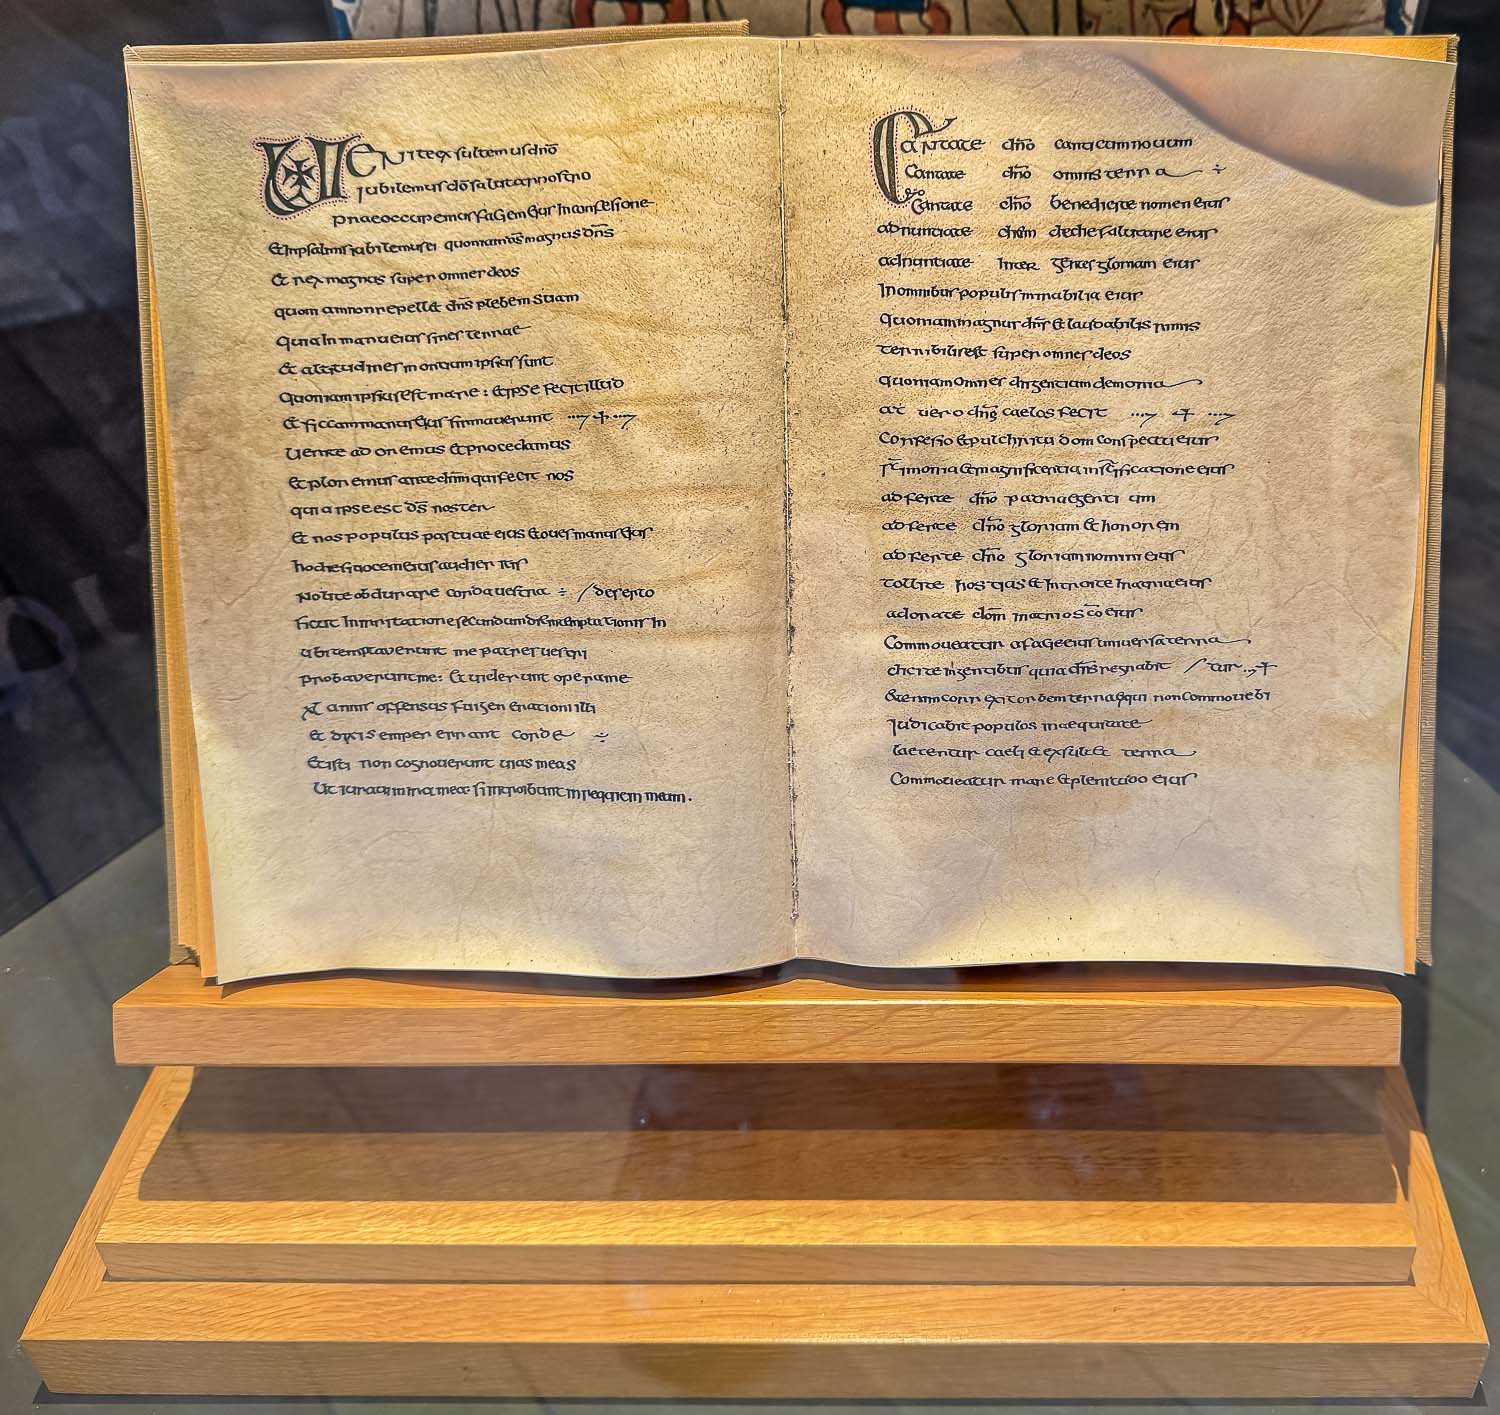 VENITE exsultemus dn̄o
jubilemus dō salutari nostro
praeoccupemus faciem eius In confessione
et In psalmis jubilemus ei quoniam d̄s magnus dn̄s
et rex magnus super omner deos
quoniam non repellet dn̄s plebem suam
quia In manu eius fines terrae
et altitudines montium ipsius sunt
Quoniam ipsius est mare : et ipse fecit illud
et siccam manus eius firmaverunt
Venite adoremus et procedamus
et ploremus ante dn̄m qui fecit nos
quia ipse est d̄s noster
et nos populus pascuae eius et oves manus eius
hodie si vocem eius audieritis
Nolite obdurare corda vestra ÷ / deserto
sicut In Inritatione secundum diem temptationis In
ubi temptaverunt me patres vestri
probaverunt me : et viderunt opera me
xl annis offensus fui generationi illi
et dixi semper errant corde ÷
et isti non cognoverunt vias meas
Ut iuravi in ira mea si introibunt in requiem meam .
Cantate dn̄o canticum novum
Cantate dn̄o omnis terra ÷
Cantate dn̄o benedicite nomen eius
adnuntiate diem de die salutare eius
adnuntiate Inter gentes gloriam eius
In omnibus populis mirabilia eius
quoniam magnus dn̄s et laudabilis nimis
terribilis est super omnes deos
quoniam omnes dii gentium demonia
at vero dn̄s caelos fecit
Confesio et pulchritudo in conspectu eius
sc̄imonia et magnificentia in sc̄ificatione eius
adferte dn̄o patriae gentium
adferte dn̄o gloriam et honorem
adferte dn̄o gloriam nomini eius
tollite hostias et Introite In atria eius
adorate dn̄m in atrio sc̄o eius
Commoveatur a facie eius universa terra
dicite in gentibus quia dn̄s regnabit / tur
etenim correxit orbem terrae qui non commovebi
Judicabit populos in aequitate
laetentur caeli et exsultet terra
Commoveatur mare et plenitudo eius